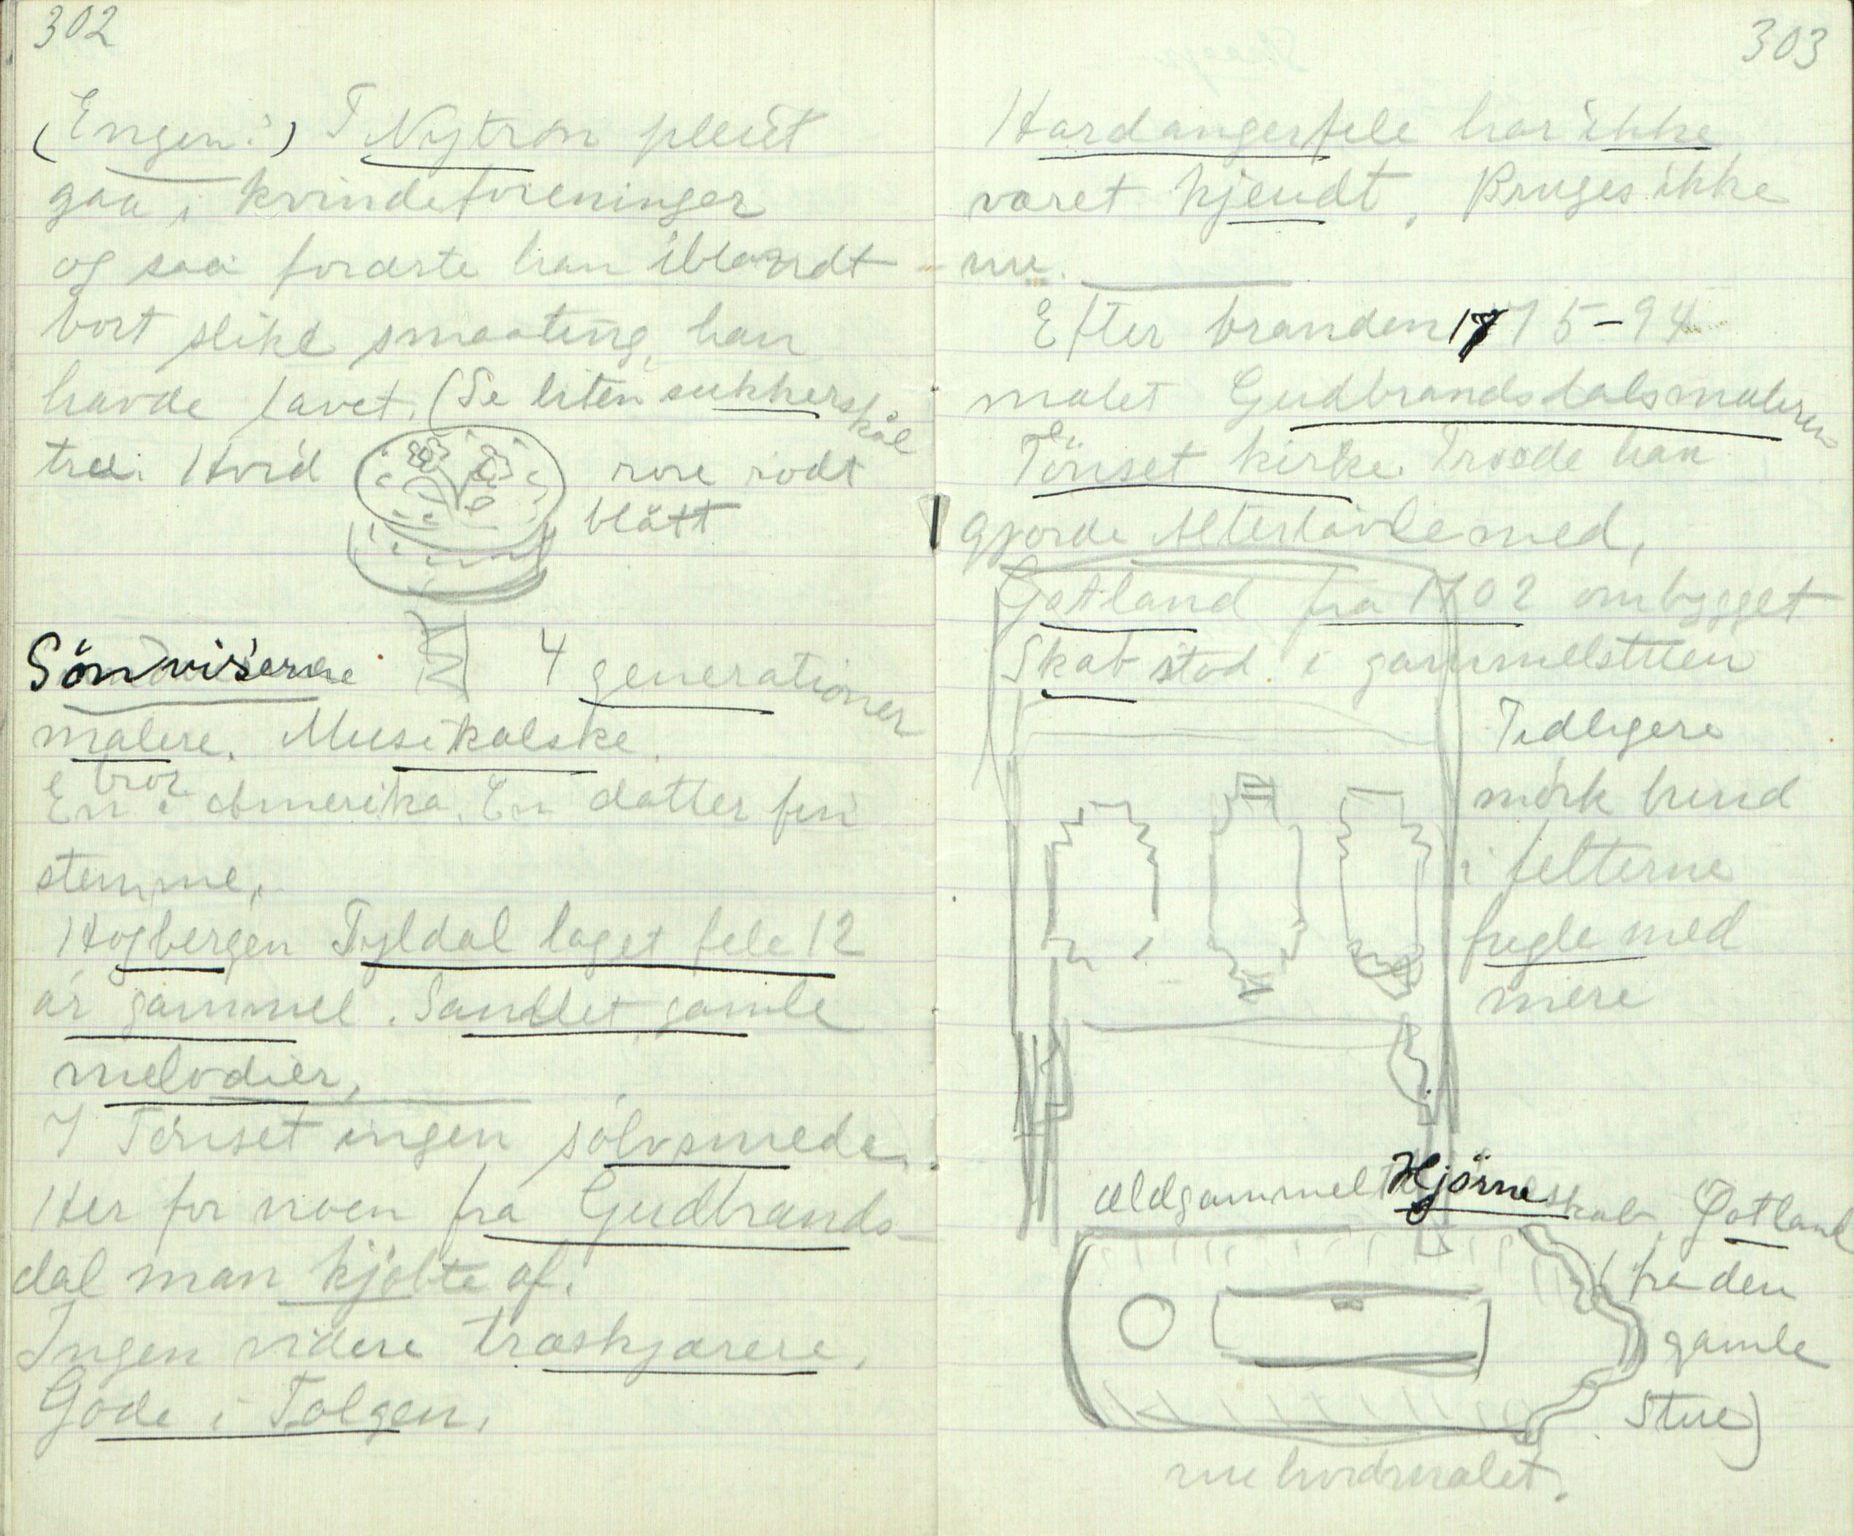 302
(Engen?) T Nytrøn pleiet
gaa i kvindeforeninger
og saa forærte han iblandt
bort slike smaating, han
havde lavet. (Se liten sukkerskål
træ. Hvid rose rødt
blått
Sönviserne 4 generationer
malere. Musikalske.
En bror i Amerika. En datter fin
stemme.
Høgbergen Tyldal laget fele 12
år gammel. Samlet gamle
melodier.
I Tönset ingen sølvsmeder.
Her for noen fra Gudbrands-
dal man kjøbte af.
Ingen videre træskjærere.
Gode i Tolgen.
303
Hardangerfele har ikke
været kjendt. Bruges ikke
nu.
Efter branden 1775-94
malet Gudbrandsdalsmaleren
Tönset kirke. Troede han
gjorde Altertavle med.
Gotland fra 1702 ombygget
Skab stod i gammelstuen
Tidligere
mörk bund
i felterne
fugle med
mere
ældgammelt Hjörneskab Gotland
(fra den
gamle
Stue)
nu hvidmalet.